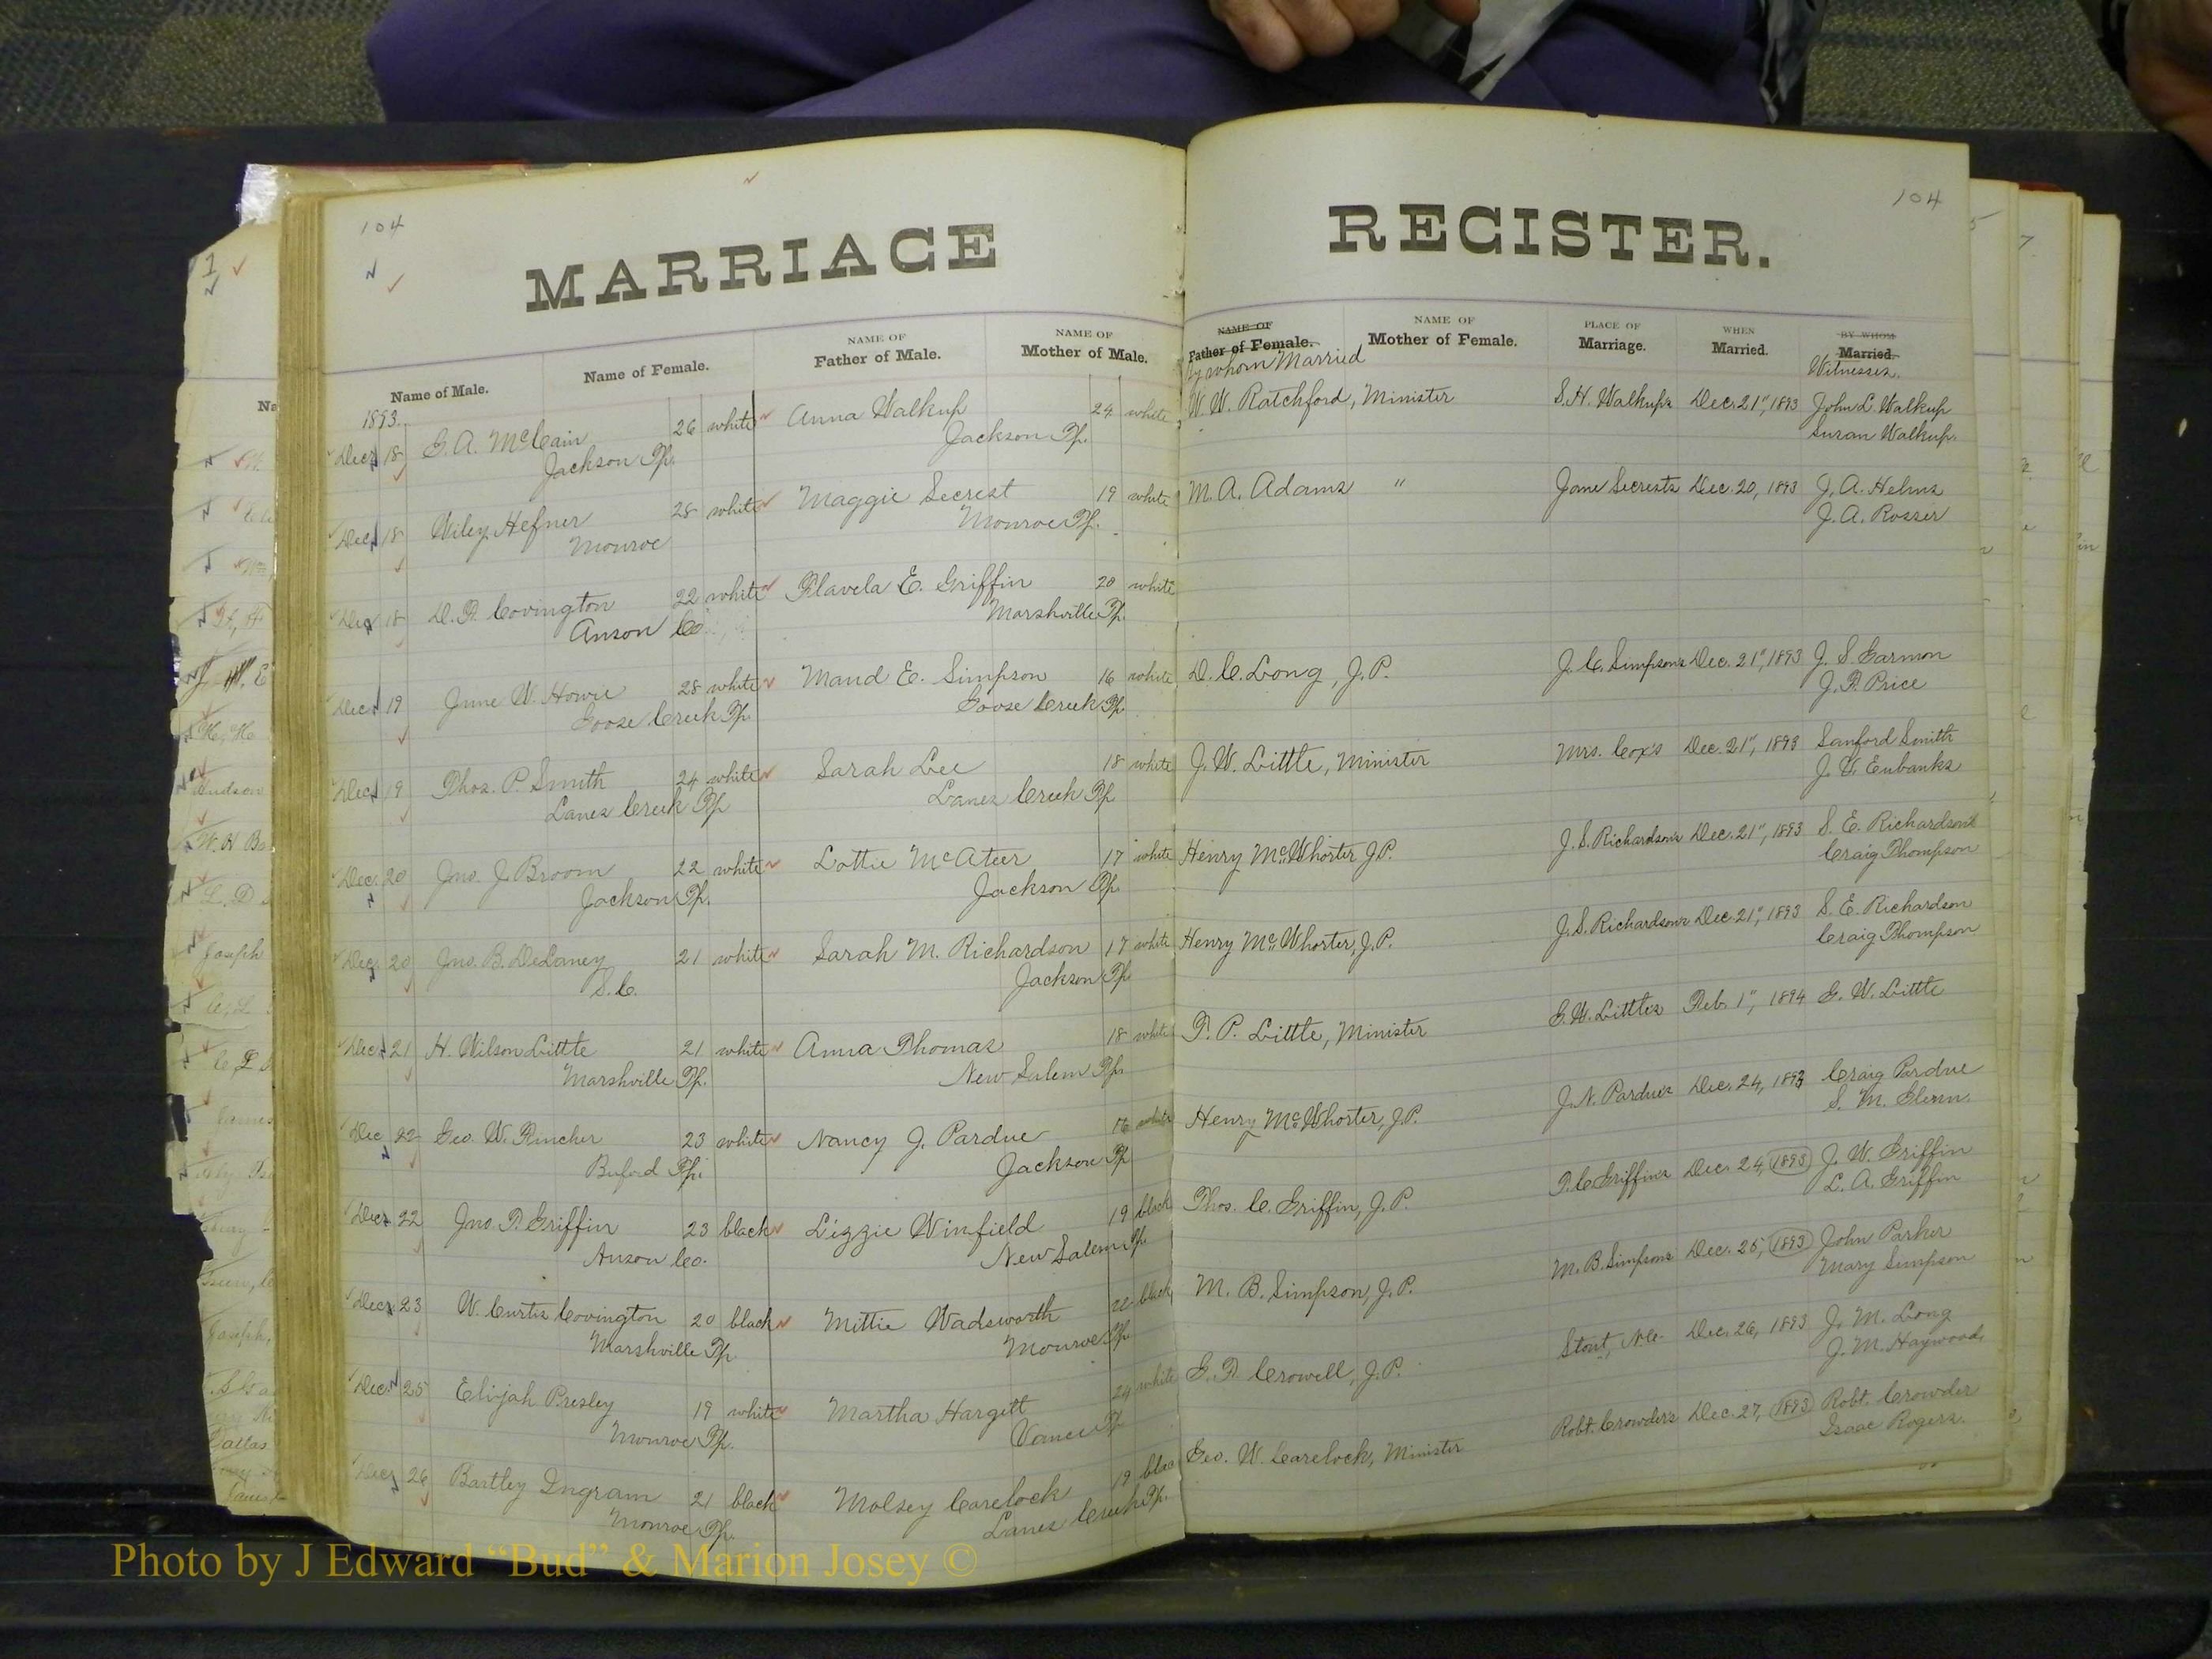 104
MARRIAGE
Name of Male.
Name of Female.
NAME OF
Father of Male.
NAME OF
Mother of Male.
1893.
Dec. 18 G. A. McCain 26 white Anna Walkup 24 white
Jackson Tp. Jackson Tp.
Dec. 18 Wiley Hefner 28 white Maggie Secrest 19 white
Monroe Monroe Tp.
Dec 18 D. F. Covington 22 white Flavela E. Griffin 20 white
Anson Co Marshville Tp.
Dec. 19 June W. Howie 28 white Maud E. Simpson 16 white
Goose Creek Tp. Goose Creek Tp.
Dec. 19 Thos. P. Smith 24 white Sarah Lee 18 white
Lanes Creek Tp Lanes Creek Tp.
Dec. 20 Jno. J. Broom 22 white Lottie McAteer 17 white
Jackson Tp. Jackson Tp.
Dec. 20 Jno. B. DeLaney 21 white Sarah M. Richardson 17 white
S.C. Jackson Tp.
Dec. 21 H. Wilson Little 21 white Anna Thomas 18 white
Marshville Tp. New Salem Tp.
Dec 22 Geo. W. Fincher 23 white Nancy J. Pardue 16 white
Buford Tp. Jackson Tp
Dec. 22 Jno. T. Griffin 23 black Lizzie Winfield 19 black
Anson Co. New Salem Tp.
Dec. 23 W. Curtis Covington 20 black Mittie Wadsworth 22 black
Marshville Tp. Monroe Tp
Dec. 25 Elijah Presley 19 white Martha Hargett 24 white
Monroe Tp. Vance Tp
Dec. 26 Bartley Ingram 21 black Molsey Carelock 19 blac
Monroe Tp. Lanes Creek Tp.
104
REGISTER.
NAME OF
Father of Female.
By whom Married
NAME OF
Mother of Female.
PLACE OF
Marriage.
WHEN
Married.
BY WHOM
Married.
Witnesses.
W. W. Ratchford, Minister S. H. Walkup's Dec. 21", 1893 John L. Walkup
Susan Walkup.
M. A. Adams " Jane Secrests Dec. 20, 1893 J. A. Helms
J. A. Rosser
D. C. Long, J.P. J. C. Simpson's Dec. 21", 1893 J. S. Garmon
J. F. Price
J. W. Little, Minister Mrs. Cox's Dec. 21", 1893 Sanford Smith
J. Eubanks
Henry McWhorter J.P. J. S. Richardson's Dec. 21", 1893 S. E. Richardson
Craig Thompson
Henry McWhorter, J.P. J. S. Richardson's Dec. 21", 1893 S. E. Richardson
Craig Thompson
T. P. Little, Minister G. W. Little's Feb. 1", 1894 G. W. Little
Henry McWhorter, J.P. J. N. Pardue's Dec. 24, 1893 Craig Pardue
S. M. Glenn.
Thos. C. Griffin, J. P. T. C. Griffin's Dec. 24, 1893 J. W. Griffin
L. A. Griffin
M. B. Simpson, J.P. M. B. Simpson's Dec. 25, 1893 John Parker
Mary Simpson
G. F. Crowell, J.P. Stout, N.C. Dec. 26, 1893 J. M. Long
J. M. Haywood,
Geo. W. Carelock, Minister Robt. Crowder's Dec. 27, 1893 Robt. Crowder
Isaac Rogers.
Photo by J Edward “Bud” & Marion Josey ©